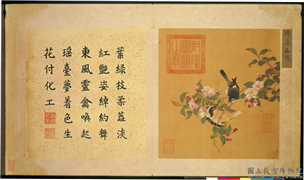 葉綠枝柔蕋淡
紅艷姿綽約舞
東風靈禽喚起
瑶臺夢着色生
花付化工
國立故宮博物院